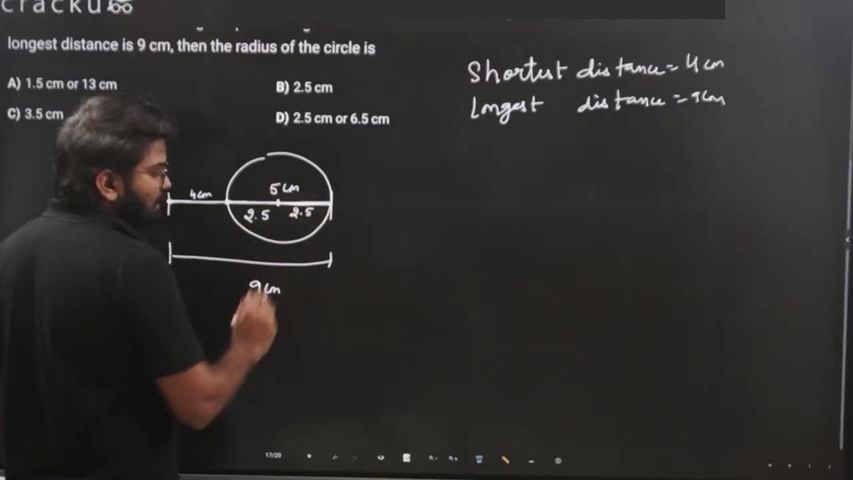 cracku
longest distance is 9 cm, then the radius of the circle is
A) 1.5 cm or 13 cm
B) 2.5 cm
C) 3.5 cm
D) 2.5 cm or 6.5 cm
Shortest distance = 4 cm
Longest distance = 9cm
4cm
5 cm
2.5 2.5
9cm
17/20